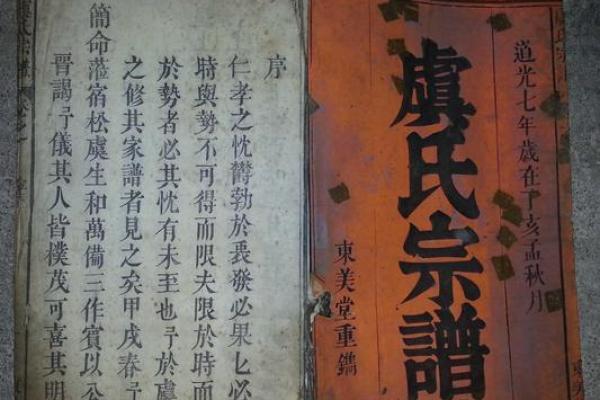 道光七年歲在丁亥孟秋月
虞氏宗譜
東美堂重鐫
序
仁孝之忱欝勃於衷發必果匕必
時與勢不可得而限夫限於時而
於勢者必其忱有未至也予於虞
之修其家譜者見之矣甲戌春予
簡命蒞宿松虞生和萬備三作賓以公
晋謁予儀其人皆樸茂可喜其明